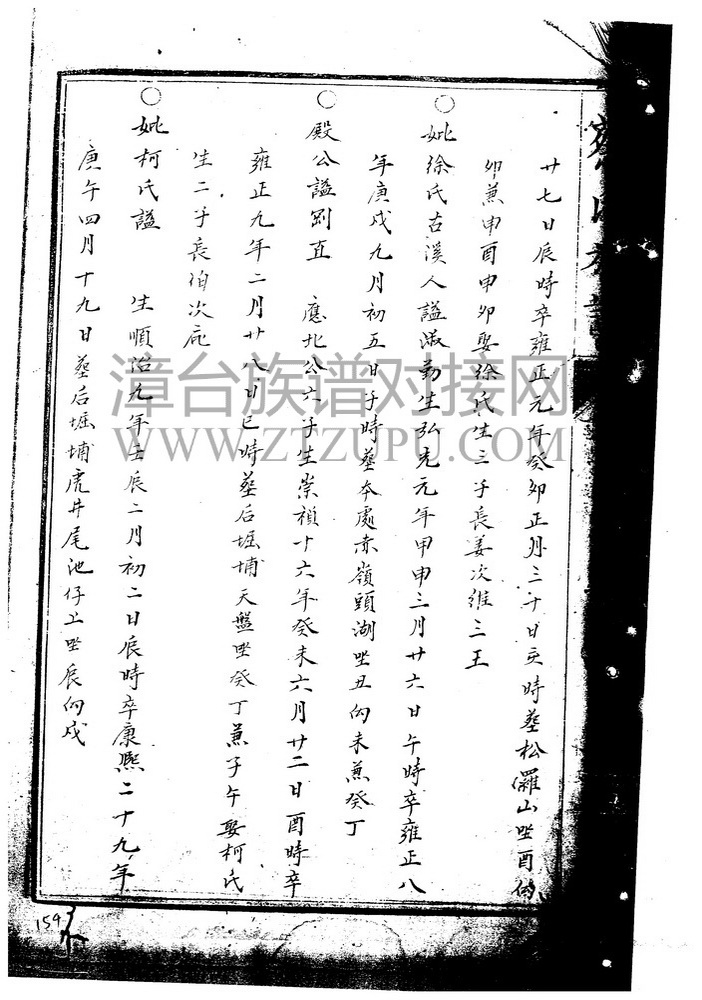 廿七日辰時卒雍正元年癸卯正月三十日亥時墓松蘿山坐酉向
卯兼申酉申卯娶徐氏生三子長姜次維三王
○妣徐氏古溪人謚淑勤生弘光元年甲申三月廿六日午時卒雍正八
年庚戌九月初五日子時墓本處赤嶺頭湖坐丑向未兼癸丁
○殿公謚剛直 應北公六子生崇禎十六年癸未六月廿二日酉時卒
雍正九年二月廿八日巳時墓后堀埔天盤坐癸丁兼子午娶柯氏
生二子長伯次庇
○妣柯氏謚 生順治九年壬辰二月初二日辰時卒康熙二十九年
庚午四月十九日墓后堀埔虎井尾池仔上坐辰向戌
159
漳台族谱对接网
WWW.ZTZUPU.COM